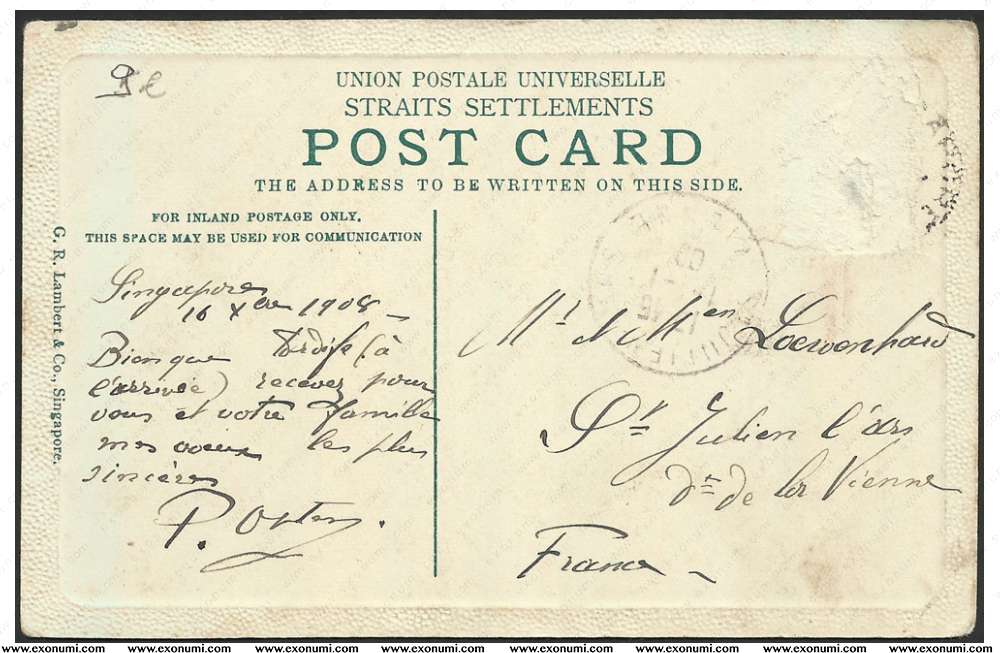 UNION POSTALE UNIVERSELLE
STRAITS SETTLEMENTS
POST CARD
THE ADDRESS TO BE WRITTEN ON THIS SIDE.
FOR INLAND POSTAGE ONLY.
THIS SPACE MAY BE USED FOR COMMUNICATION
G. R. Lambert & Co., Singapore.
Singapore
16 Xbre 1908
Bien que tardifs (à
l'arrivée) recevez pour
vous et votre famille
mes voeux les plus
sincères
P.
Mr & Men Loewenhard
St Julien l'ars
dt de la Vienne
France
www.exonumi.com www.exonumi.com www.exonumi.com www.exonumi.com www.exonumi.com www.exonumi.com www.exonumi.com www.exonumi.com